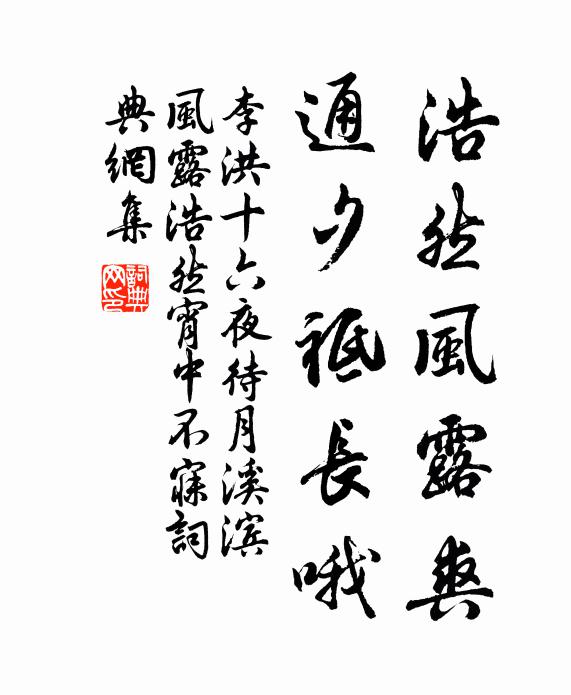 浩然風露爽
通夕祗長哦
李洪十六夜待月溪滨
風露浩然宵中不寐詞
典網集
詞典
网印